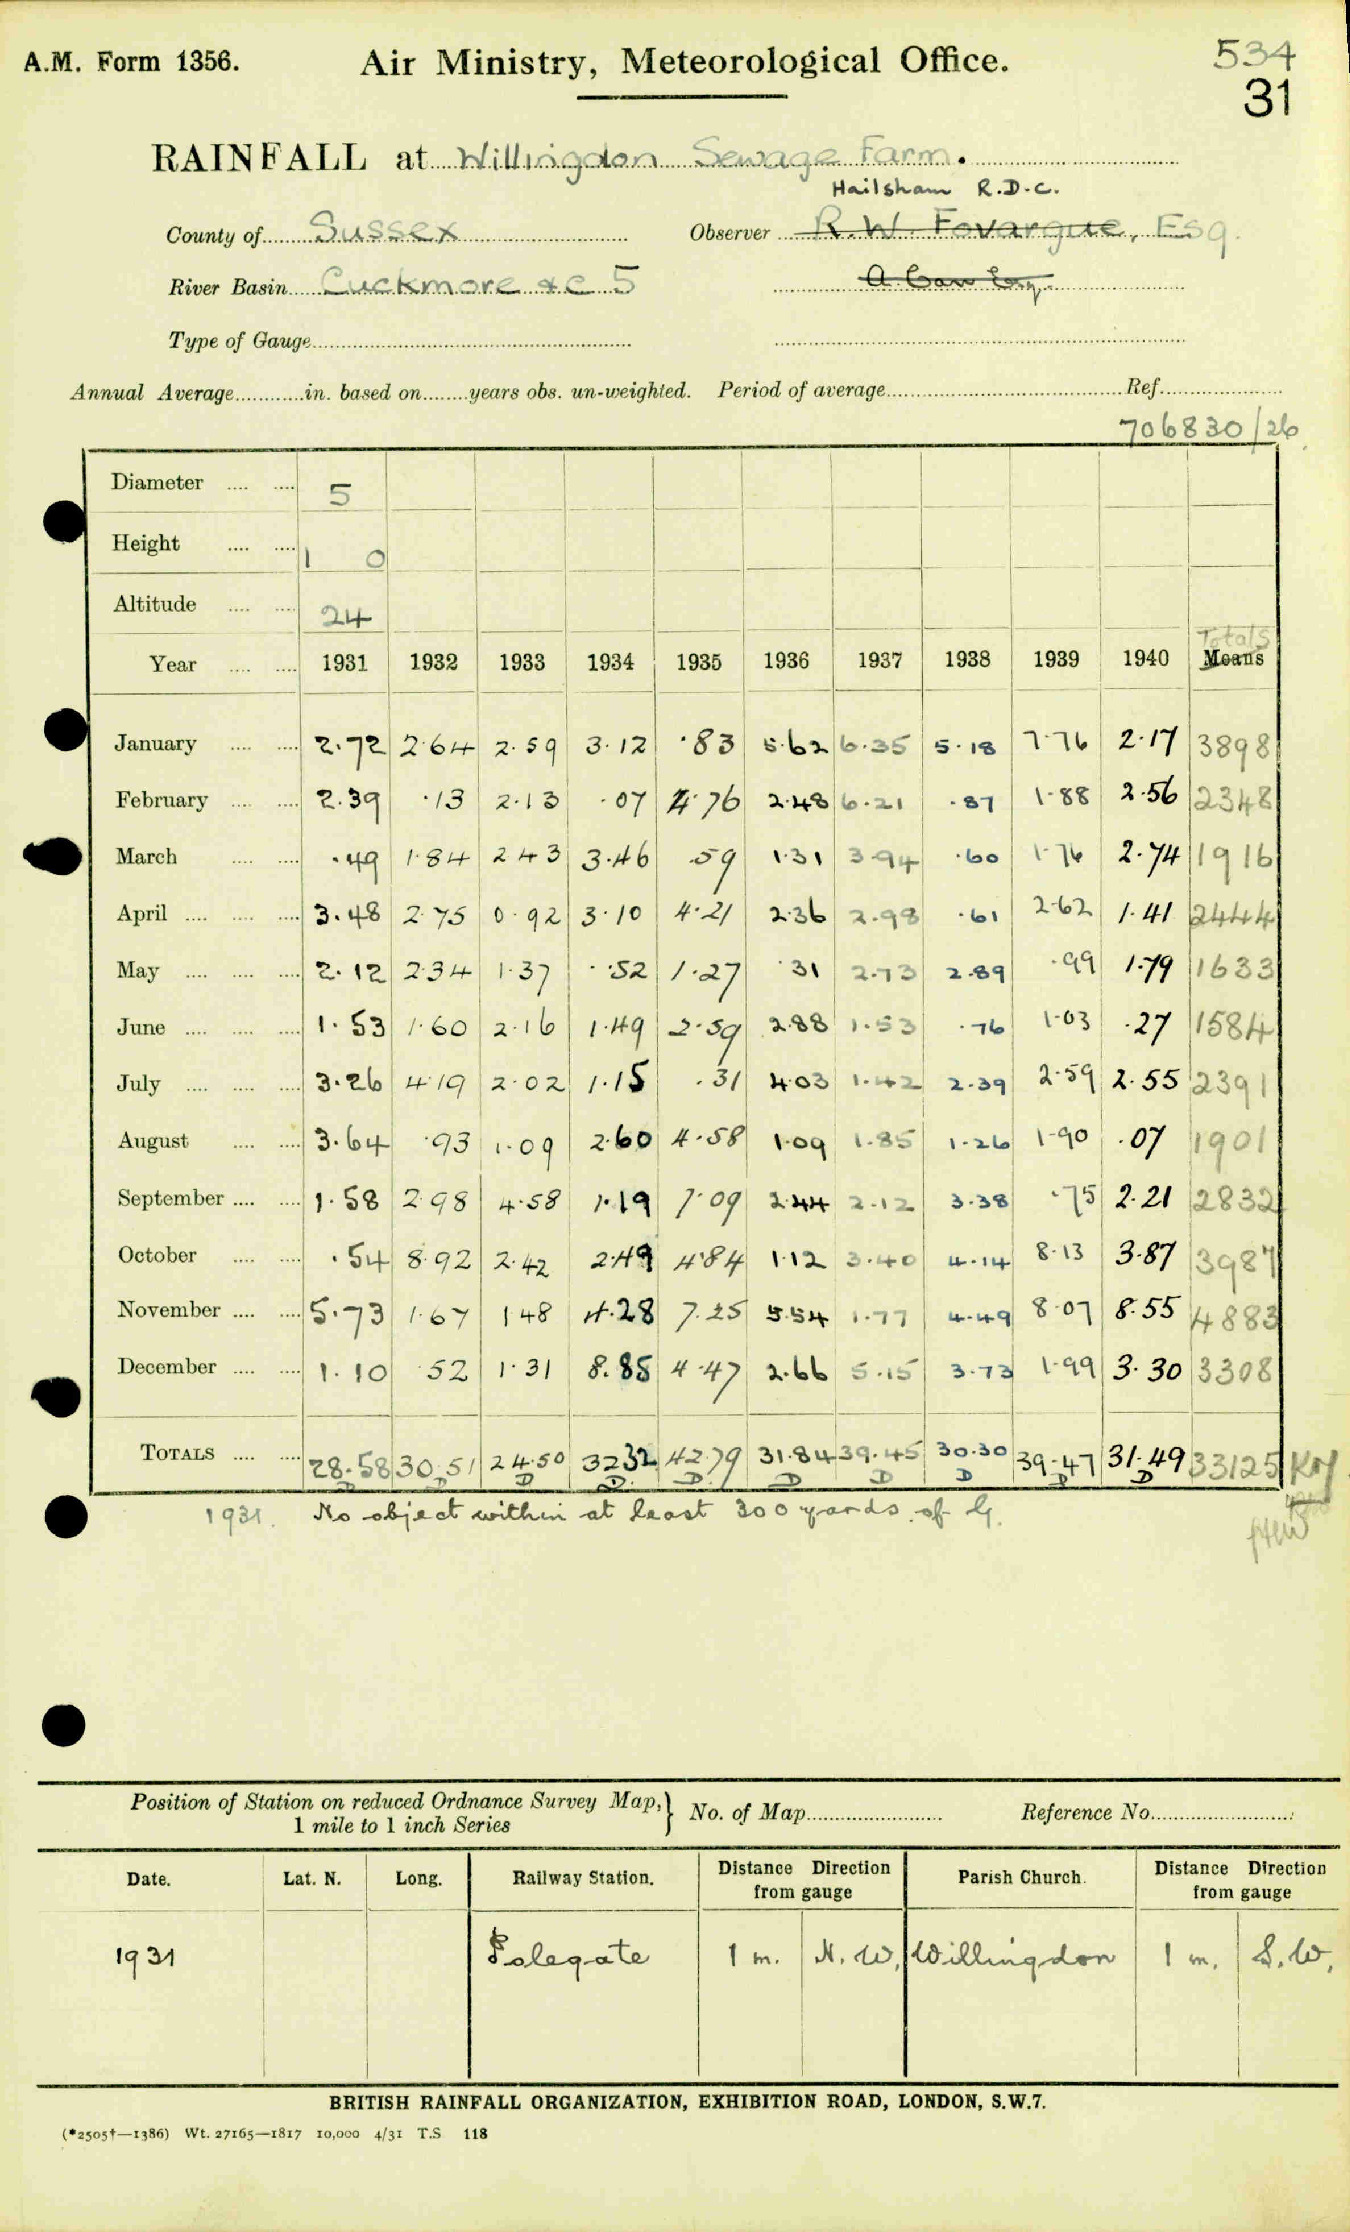 A.M. Form 1356.
Air Ministry, Meteorological Office.
534
31
RAINFALL at Willingdon Sewage Farm.
Hailsham R.D.C.
County of Sussex Observer R.W. Fovargue, Esq.
River Basin Cuckmore &c 5 A Caw Esq.
Type of Gauge
Annual Average in. based on years obs. un-weighted. Period of average Ref.
706830/26
Diameter 5
Height 1 0
Altitude 24
Totals
Year 1931 1932 1933 1934 1935 1936 1937 1938 1939 1940 Means
January 2.72 2.64 2.59 3.12 .83 5.62 6.35 5.18 7.76 2.17 3898
February 2.39 .13 2.13 .07 4.76 2.48 6.21 .87 1.88 2.56 2348
March .49 1.84 2.43 3.46 .59 1.31 3.94 .60 1.76 2.74 1916
April 3.48 2.75 0.92 3.10 4.21 2.36 2.98 .61 2.62 1.41 2444
May 2.12 2.34 1.37 .52 1.27 .31 2.73 2.89 .99 1.79 1633
June 1.53 1.60 2.16 1.49 2.59 2.88 1.53 .76 1.03 .27 1584
July 3.26 4.19 2.02 1.15 .31 4.03 1.42 2.39 2.59 2.55 2391
August 3.64 .93 1.09 2.60 4.58 1.09 1.85 1.26 1.90 .07 1901
September 1.58 2.98 4.58 1.19 7.09 2.44 2.12 3.38 .75 2.21 2832
October .54 8.92 2.42 2.49 4.84 1.12 3.40 4.14 8.13 3.87 3987
November 5.73 1.67 1.48 4.28 7.25 5.54 1.77 4.49 8.07 8.55 4883
December 1.10 .52 1.31 8.85 4.47 2.66 5.15 3.73 1.99 3.30 3308
TOTALS 28.58 30.51 24.50 32.32 42.79 31.84 39.45 30.30 39.47 31.49 33125
D D D D D D D D D D
1931. No object within at least 300 yards of G.
Position of Station on reduced Ordnance Survey Map, No. of Map Reference No.
1 mile to 1 inch Series
Date. Lat. N. Long. Railway Station. Distance Direction from gauge Parish Church. Distance Direction from gauge
1931 Polegate 1 m. N.W. Willingdon 1 m. S.W.
BRITISH RAINFALL ORGANIZATION, EXHIBITION ROAD, LONDON, S.W.7.
(*2505†—1386) Wt. 27165—1817 10,000 4/31 T.S 118